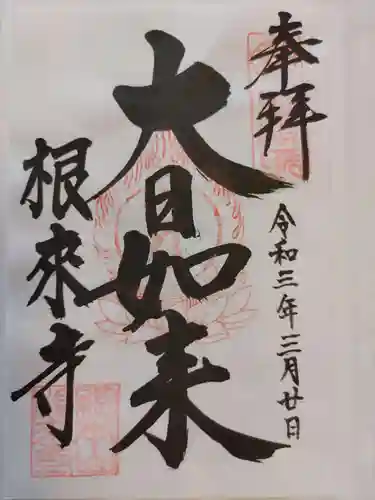 奉拝
令和三年三月廿日
大日如来
根來寺